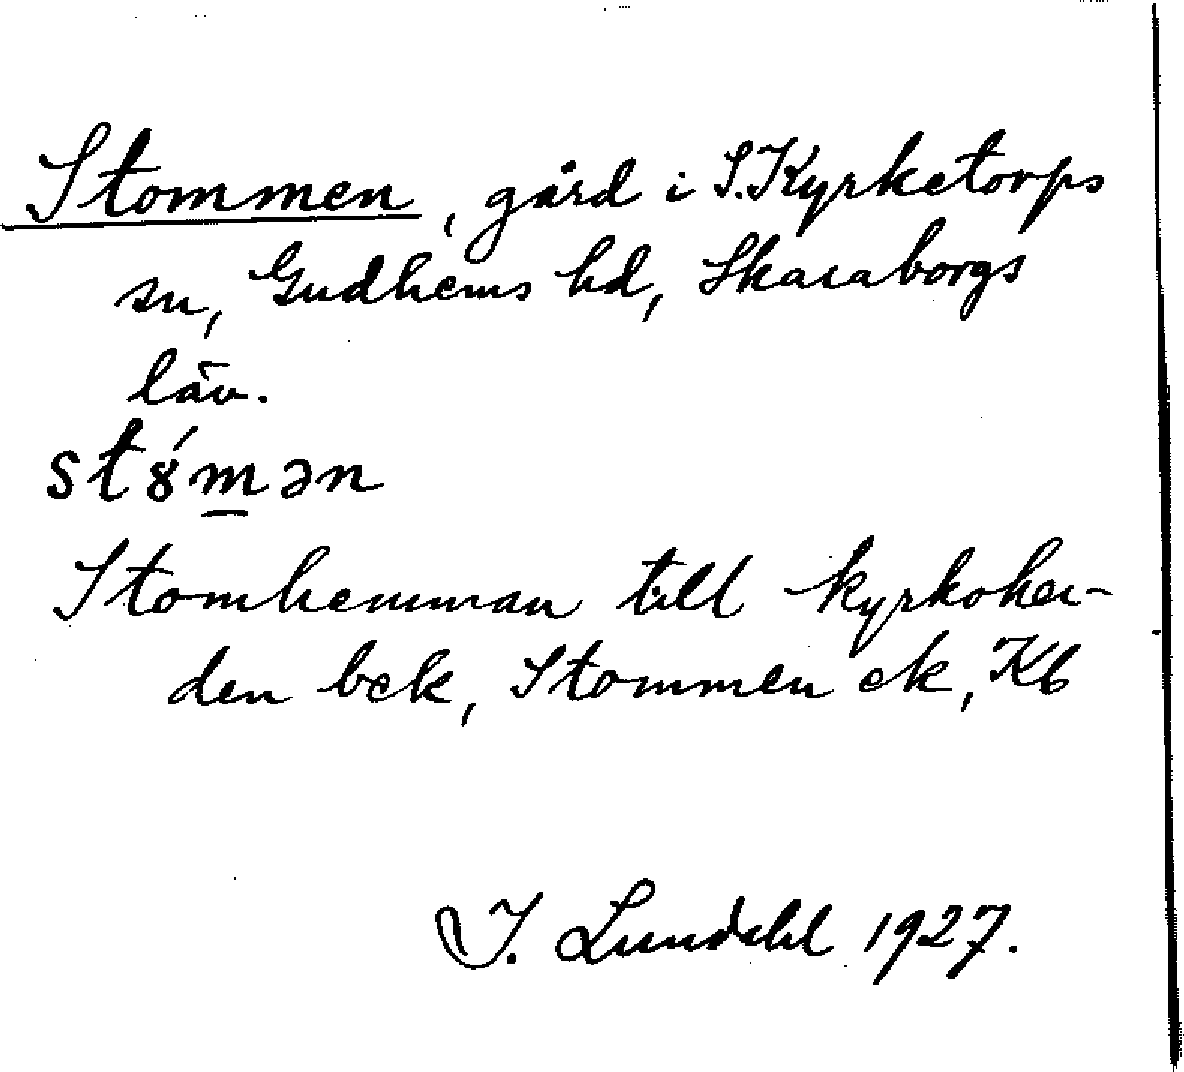 Stommen, gård i S. Kyrketorps
sn, Gudhems hd, Skaraborgs
län.
stȣ́m̲ən
Stomhemman till kyrkoher-
den bek, Stommen ek, Kb
I. Lundahl 1927.